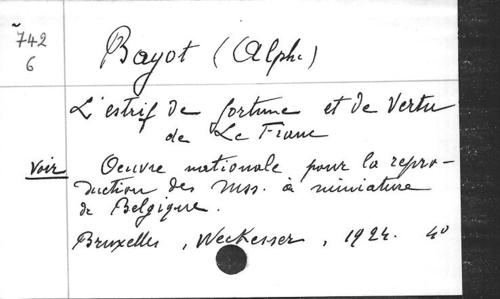 742
6
Bayot (Alph.)
L'estrif de fortune et de vertu
de Le Franc
Voir Oeuvre nationale pour la repro-
duction des mss. à miniature
de Belgique.
Bruxelles, Weckesser, 1924. 4º